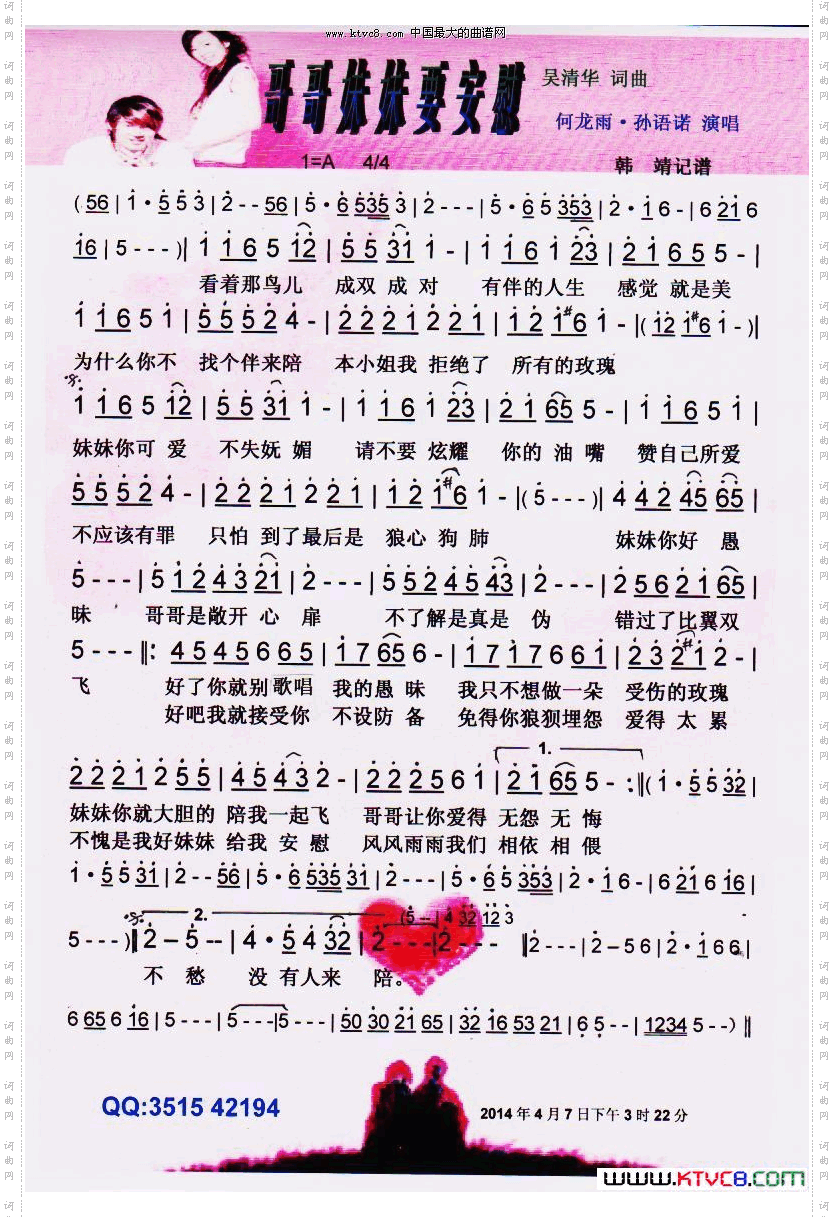 www.ktvc8.com 中国最大的曲谱网
哥哥妹妹要安慰
吴清华 词曲
何龙雨·孙语诺 演唱
1=A 4/4
韩 靖记谱
(56 | 1·5 5 3 | 2 - - 56 | 5·6 535 3 | 2 - - - | 5·6 5 353 | 2·1 6 - | 6 21 6
16 | 5 - - - )| 1 1 6 5 12 | 5 5 31 1 - | 1 1 6 1 23 | 2 1 6 5 5 - |
看着那鸟儿 成双 成 对 有伴的人生 感觉 就是美
1 1 6 5 1 | 5 5 5 2 4 - | 2 2 2 1 2 2 1 | 1 2 1#6 1 - |( 12 1#6 1 - )|
为什么你不 找个伴来陪 本小姐我 拒绝了 所有的玫瑰
1 1 6 5 12 | 5 5 31 1 - | 1 1 6 1 23 | 2 1 65 5 - | 1 1 6 5 1 |
妹妹你可 爱 不失妩 媚 请不要 炫耀 你的 油 嘴 赞自己所爱
5 5 5 2 4 - | 2 2 2 1 2 2 1 | 1 2 1#6 1 - |( 5 - - - )| 4 4 2 45 65 |
不应该有罪 只怕 到了最后是 狼心 狗 肺 妹妹你好 愚
5 - - - | 5 1 2 4 3 21 | 2 - - - | 5 5 2 4 5 43 | 2 - - - | 2 5 6 2 1 65 |
昧 哥哥是敞开 心 扉 不了解是真是 伪 错过了比翼双
5 - - - ‖: 4 5 4 5 6 6 5 | 1 7 65 6 - | 1 7 1 7 6 6 1 | 2 3 2#1 2 - |
飞 好了你就别 歌唱 我的愚 昧 我只不想做一朵 受伤的玫瑰
好吧我就接受你 不设防 备 免得你狼狈埋怨 爱得 太 累
1.
2 2 2 1 2 5 5 | 4 5 43 2 - | 2 2 2 5 6 1 | 2 1 65 5 - :‖( 1·5 5 32 |
妹妹你就大胆的 陪我一起飞 哥哥让你爱得 无怨 无 悔
不愧是我好妹妹 给我 安 慰 风风雨雨我们 相依 相 偎
1·5 5 31 | 2 - - 56 | 5·6 535 31 | 2 - - - | 5·6 5 353 | 2·1 6 - | 6 21 6 16 |
2. (5 -- | 4 32 12 3
5 - - - )‖ 2 – 5 -- | 4·5 4 32 | 2 - - -| 2 - - - ‖ 2 - - - | 2 – 5 6 | 2·1 6 6 |
不 愁 没 有人来 陪。
6 65 6 16 | 5 - - - | 5 - - -| 5 - - - | 50 30 21 65 | 32 16 53 21 | 6 5 - - | 1234 5 - - ) ‖
QQ:3515 42194
2014 年 4 月 7 日下午 3 时 22 分
www.KTVC8.com
词曲网